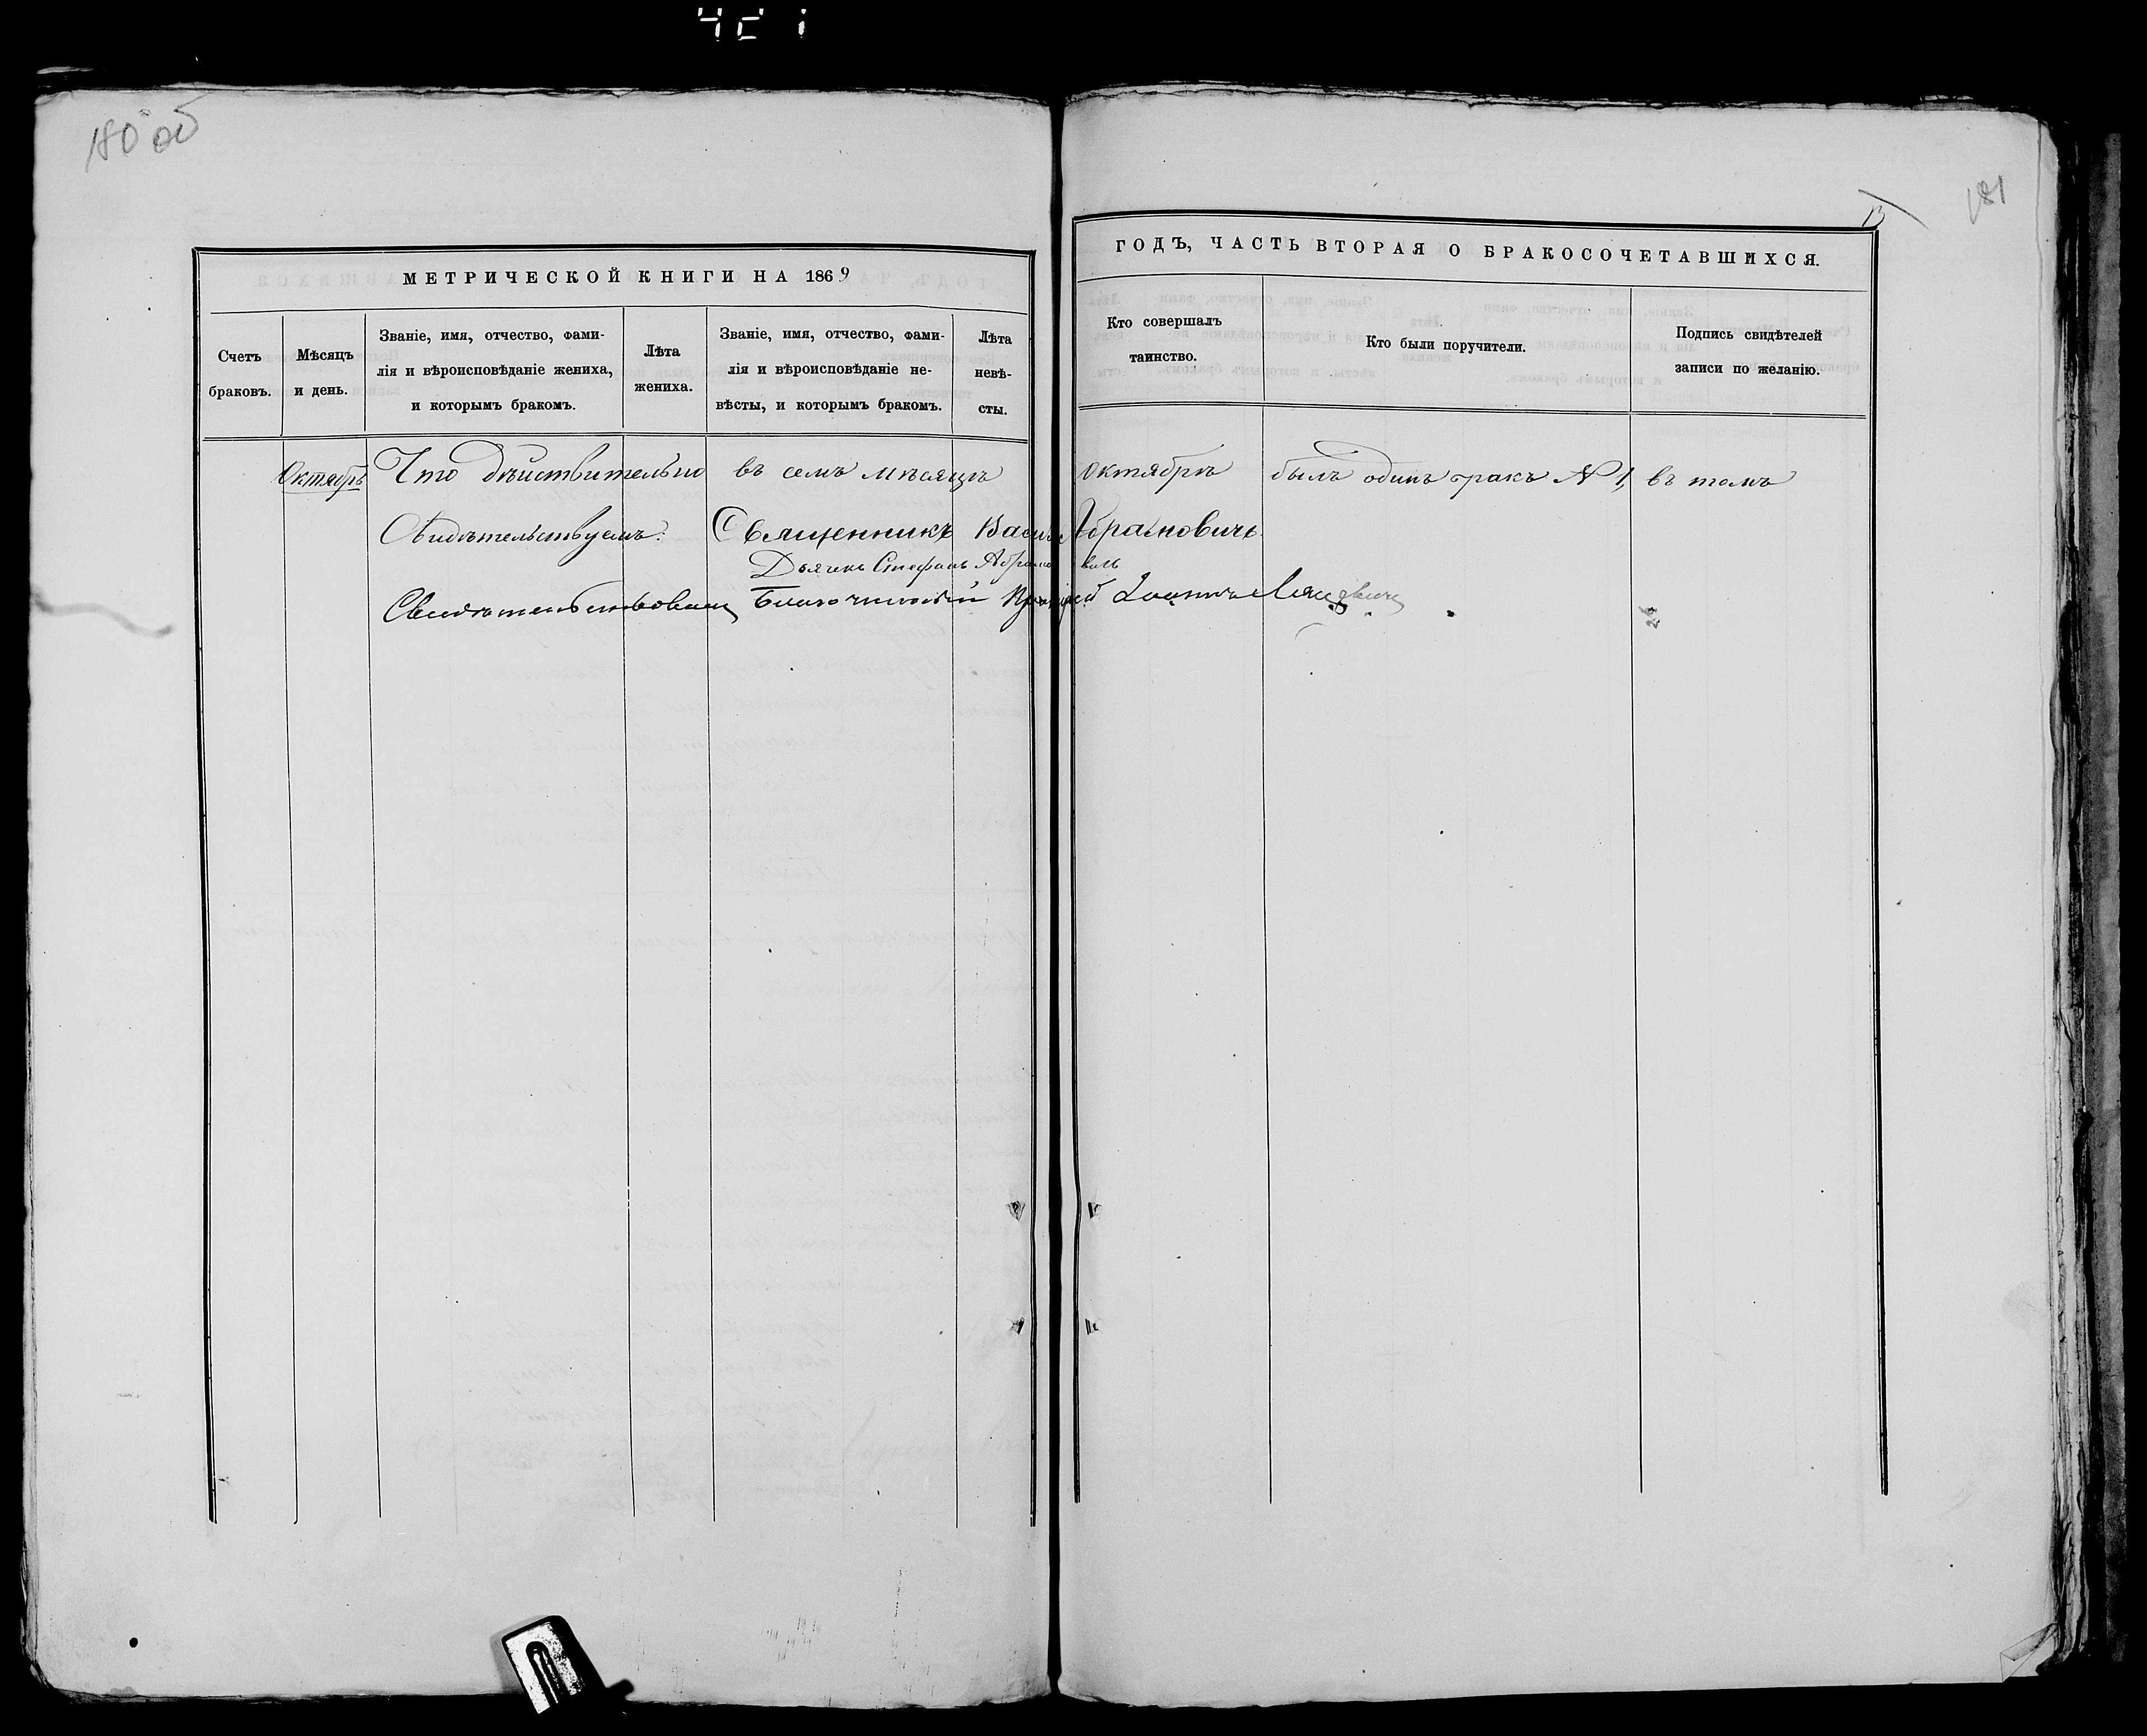 180 об
181
13
МЕТРИЧЕСКОЙ КНИГИ НА 1869
ГОДЪ, ЧАСТЬ ВТОРАЯ О БРАКОСОЧЕТАВШИХСЯ.
Счетъ
браковъ.
Мѣсяцъ
и день.
Званіе, имя, отчество, фами-
лія и вѣроисповѣданіе жениха,
и которымъ бракомъ.
Лѣта
жениха.
Званіе, имя, отчество, фами-
лія и вѣроисповѣданіе не-
вѣсты, и которымъ бракомъ.
Лѣта
невѣ-
сты.
Кто совершалъ
таинство.
Кто были поручители.
Подпись свидѣтелей
записи по желанію.
Октябрь Что дѣйствительно въ семъ мѣсяцѣ Октябрѣ былъ одинъ бракъ № 1, въ томъ
Свидѣтельствуемъ: Священникъ Абрамовичъ
Дьячекъ Стефанъ
Свидѣтельствовалъ Благочинный Іоаннъ